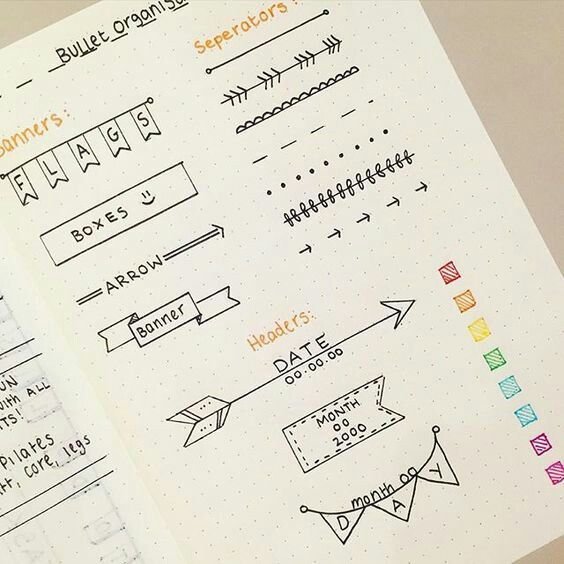 Bullet
Seperators :
anners:
FLAGS
BOXES
ARROW
Banner
Headers:
DATE
00.00.00
MONTH
00
2000
month 00
DAY
with ALL
Pilates
core, legs